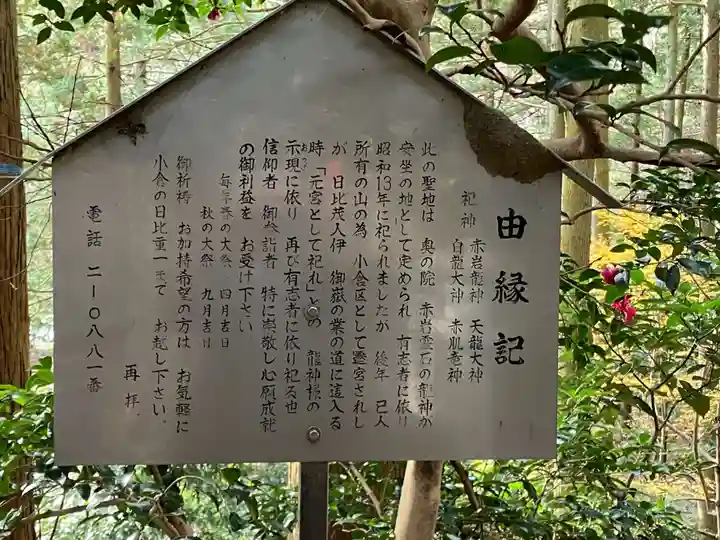 由縁記
祀神 赤岩龍神 天龍大神
白龍大神 赤肌竜神
此の聖地は 奥の院 赤岩霊石の龍神が
安坐の地として定められ 有志者に依り
昭和13年に祀られましたが 後年 巳人
所有の山の為 小倉区として遷宮されし
が 日比茂人伊 御嶽の業の道に這入る
時「元宮として祀れ」との 龍神様の
示現に依り 再び有志者に依り祀る也
信仰者 御参詣者 特に崇敬し心願成就
の御利益を お受け下さい
毎年春の大祭 四月吉日
秋の大祭 九月吉日
御祈祷 お加持希望の方は お気軽に
小倉の日比重一まで お越し下さい。
再拝
電話 二一〇八八一番